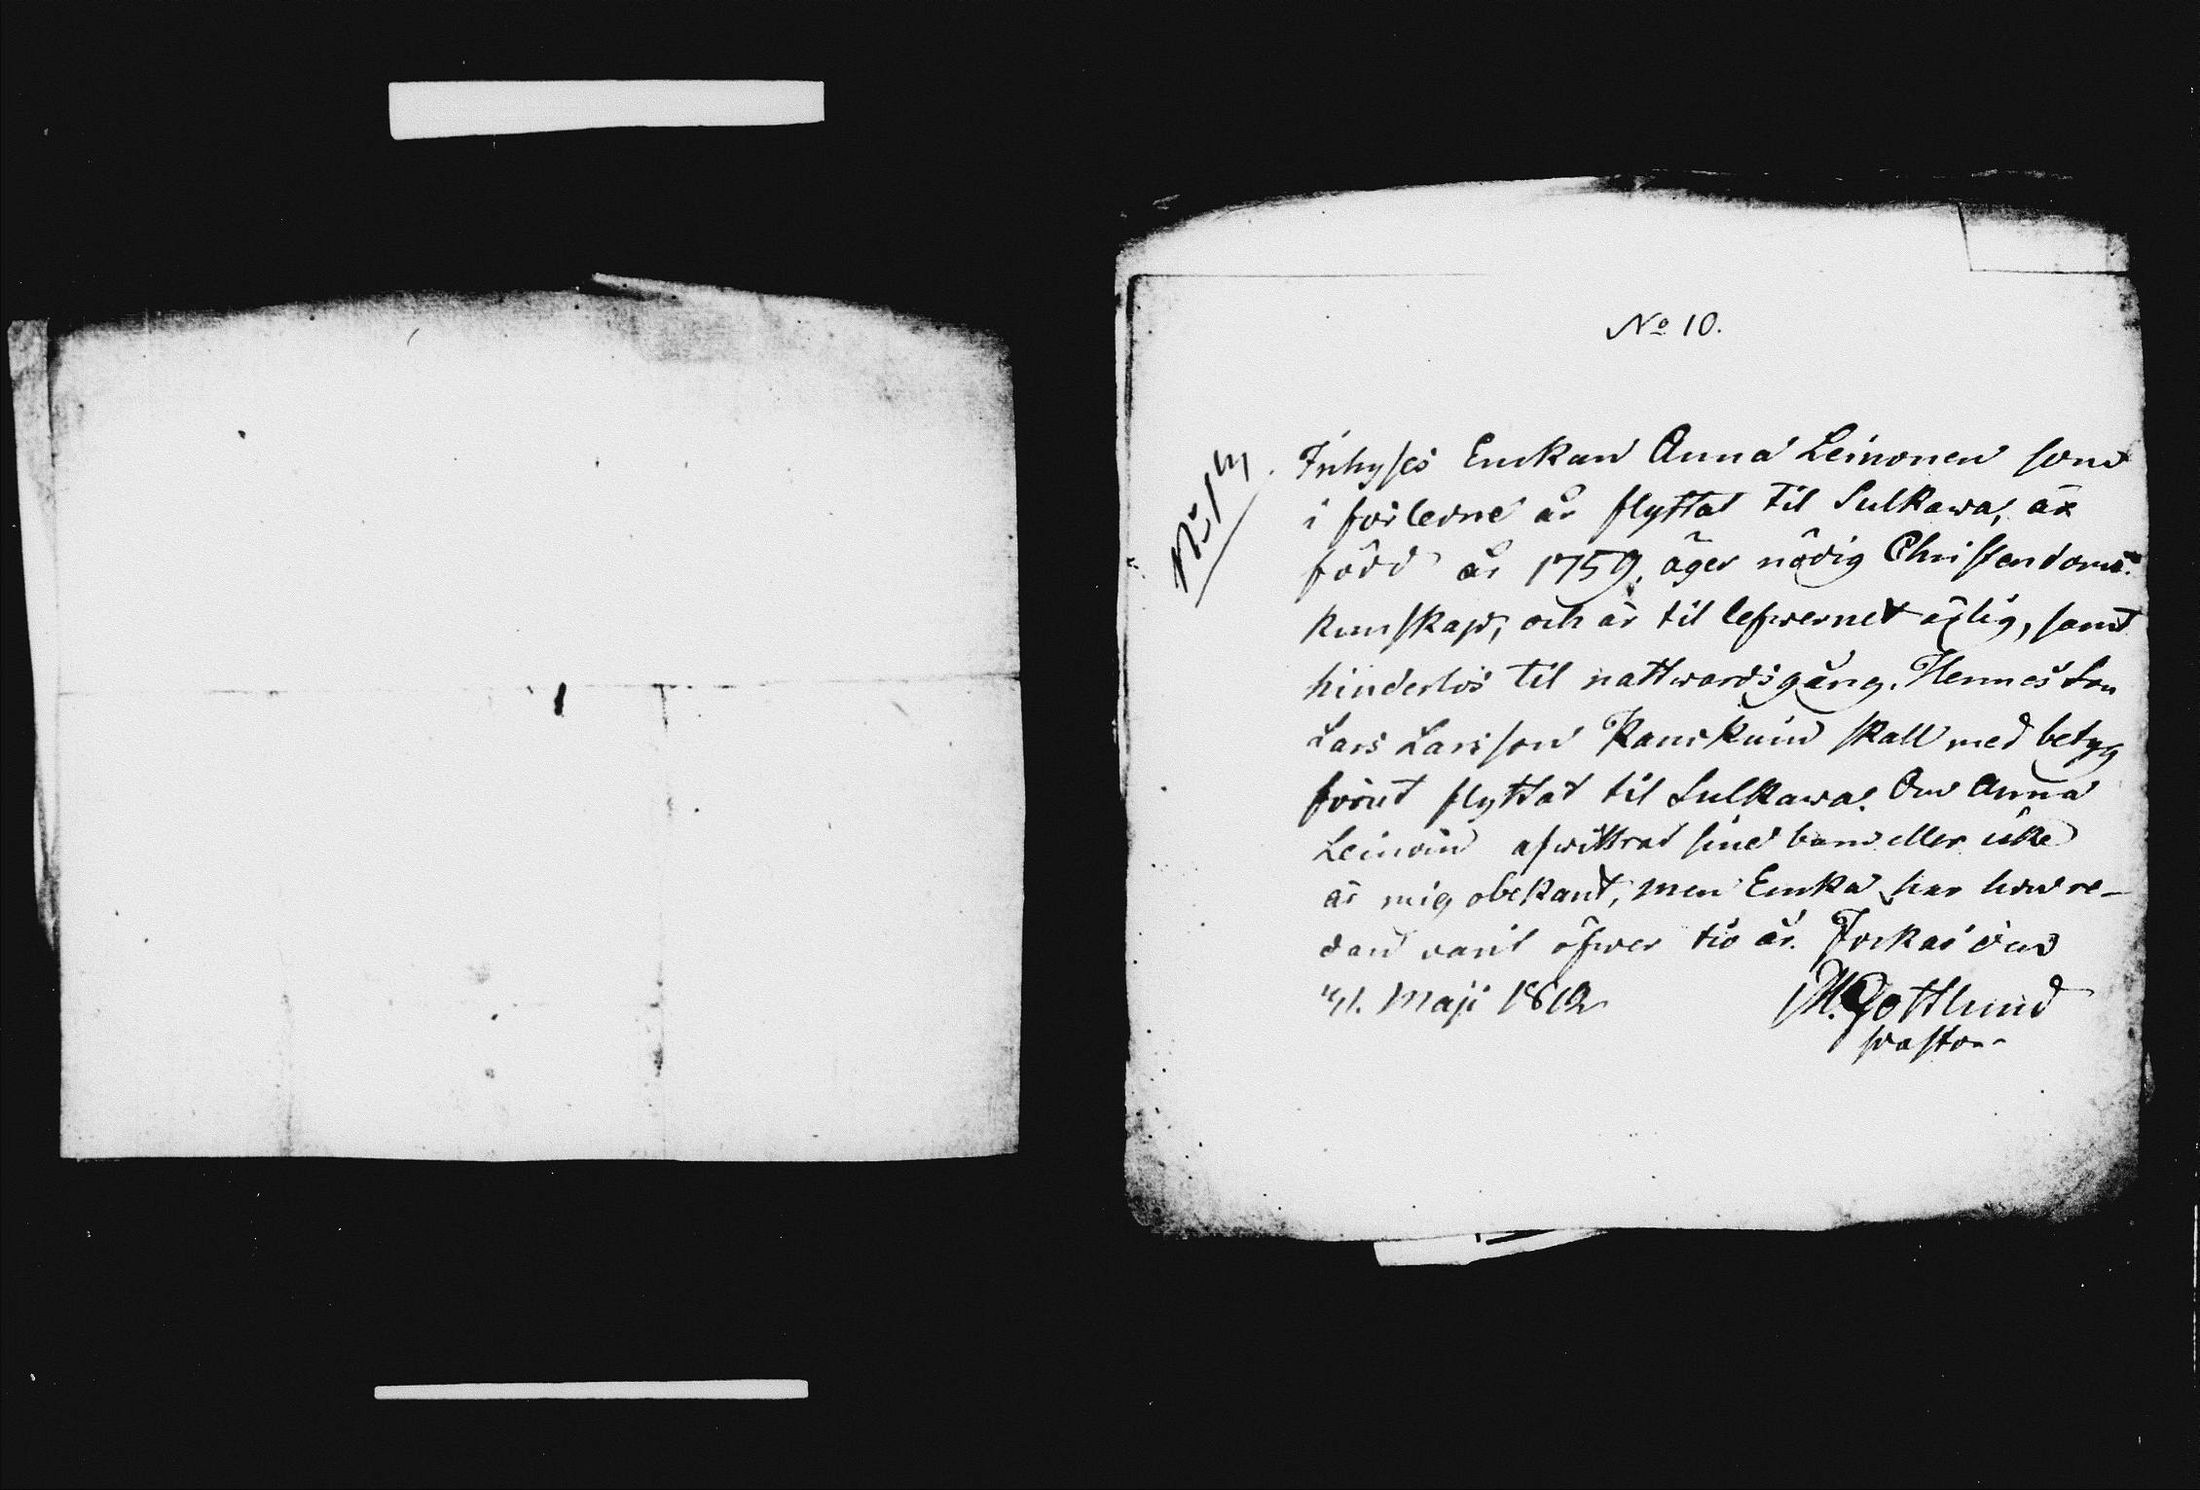 No 10.
Inhyses Enckan Anna Leinonen som
i förledne år flyttat til Sulkawa, är
född år 1759, äger nödig Christendoms
kunskap, och är til lefwernet ärlig, samt
hinderlös til nattwardsgång. Hennes Son
Lars Larsson Kanskuin skall med betyg
förut flyttat til Sulkawa. Om Anna
Leinoin afwittrat sine barn eller icke
är mig obekant, men Enka har hon re-
dan varit öfwer tio år. Jockas den
Maji 1812
M. Gottlund
pastor